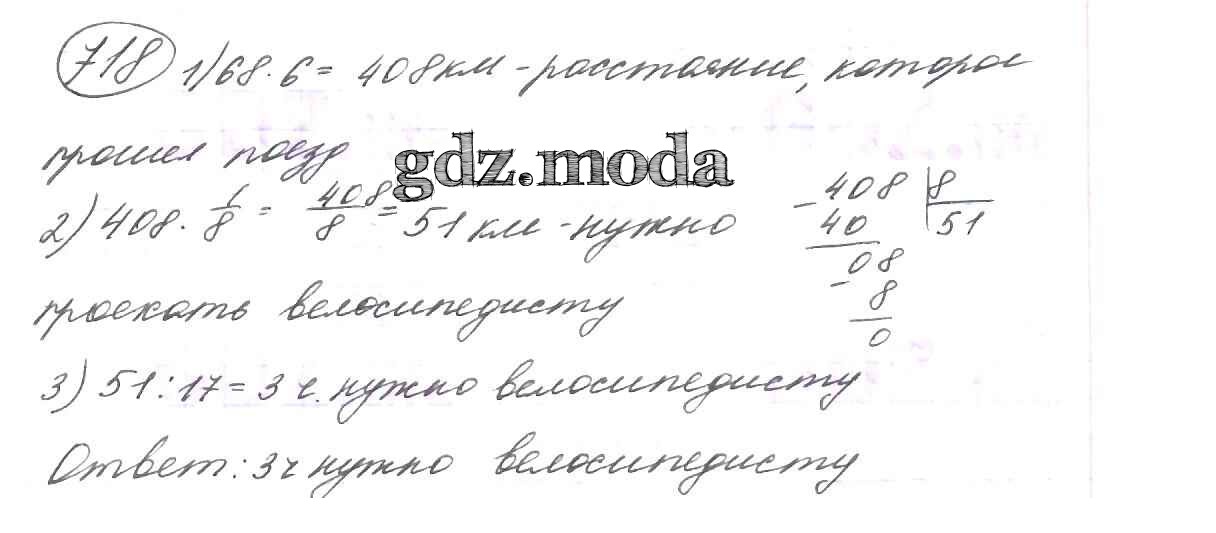 718 1) 68 · 6 = 408 км - расстояние, которое
прошел поезд
gdz.moda
2) 408 · 1/8 = 408/8 = 51 км - нужно
проехать велосипедисту
3) 51 : 17 = 3 ч. нужно велосипедисту
Ответ: 3 ч нужно велосипедисту
- 408 | 8
40 51
08
- 8
0